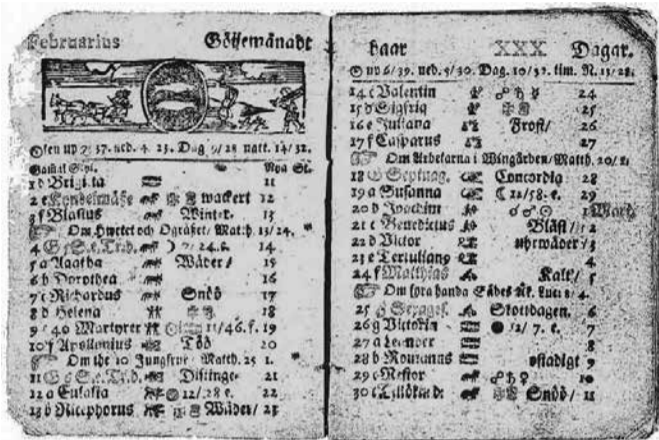 Februarius Götjemånadt
Solen up 7/ 37. ned. 4. 23. Dag 9/ 28 natt. 14/ 32.
Gamal Styl. Nya St.
1 d Brigitta 11
2 e Kyndelmäße wackert 12
3 f Blasius Winter. 13
Om Hwetet och Ogräset/ Matth. 13/ 24.
4 G 5 S. e. Tr. d. 7/ 24. f. 14
5 a Agatha Wäder/ 15
6 b Dorothea 16
7 c Richardus Snöö 17
8 d Helena 18
9 40 Martyrer 11/46. f. 19
10 f Apollonius Töö 20
Om the 10 Jungfrur Matth. 25 1.
11 G 6 S. e. Tr. d. Distinge- 21
12 a Eulalia 12/ 28 e. 22
13 b Nicephorus Wäder/ 23
haar XXX Dagar.
up 6/ 39. ned. 5/ 30. Dag. 10/ 52. tim. N. 13/ 28.
14 c Valentin 24
15 d Sigfrid 25
16 e Juliana Frost/ 26
17 f Caiparus 27
Om Arbetarna i Wingården/ Matth. 20/ 1.
18 G Septuag. Concordia 28
19 a Susanna 11/58. e. 29
20 b Joachim 1 Mart.
21 c Benedictus Bläst/ 2
22 d Victor uhrwäder/ 3
23 e Tertuliang 4
24 f Matthias Kalt/ 5
Om fyra handa Sädes Åk. Luc. 8/ 4.
25 g Sexages. Skottdagen. 6
26 g Victorin 12/ 7. e. 7
27 a Leander 8
28 b Romanus ostadigt 9
29 c Nestor 10
30 c Tillökn: d: Snöö/ 11